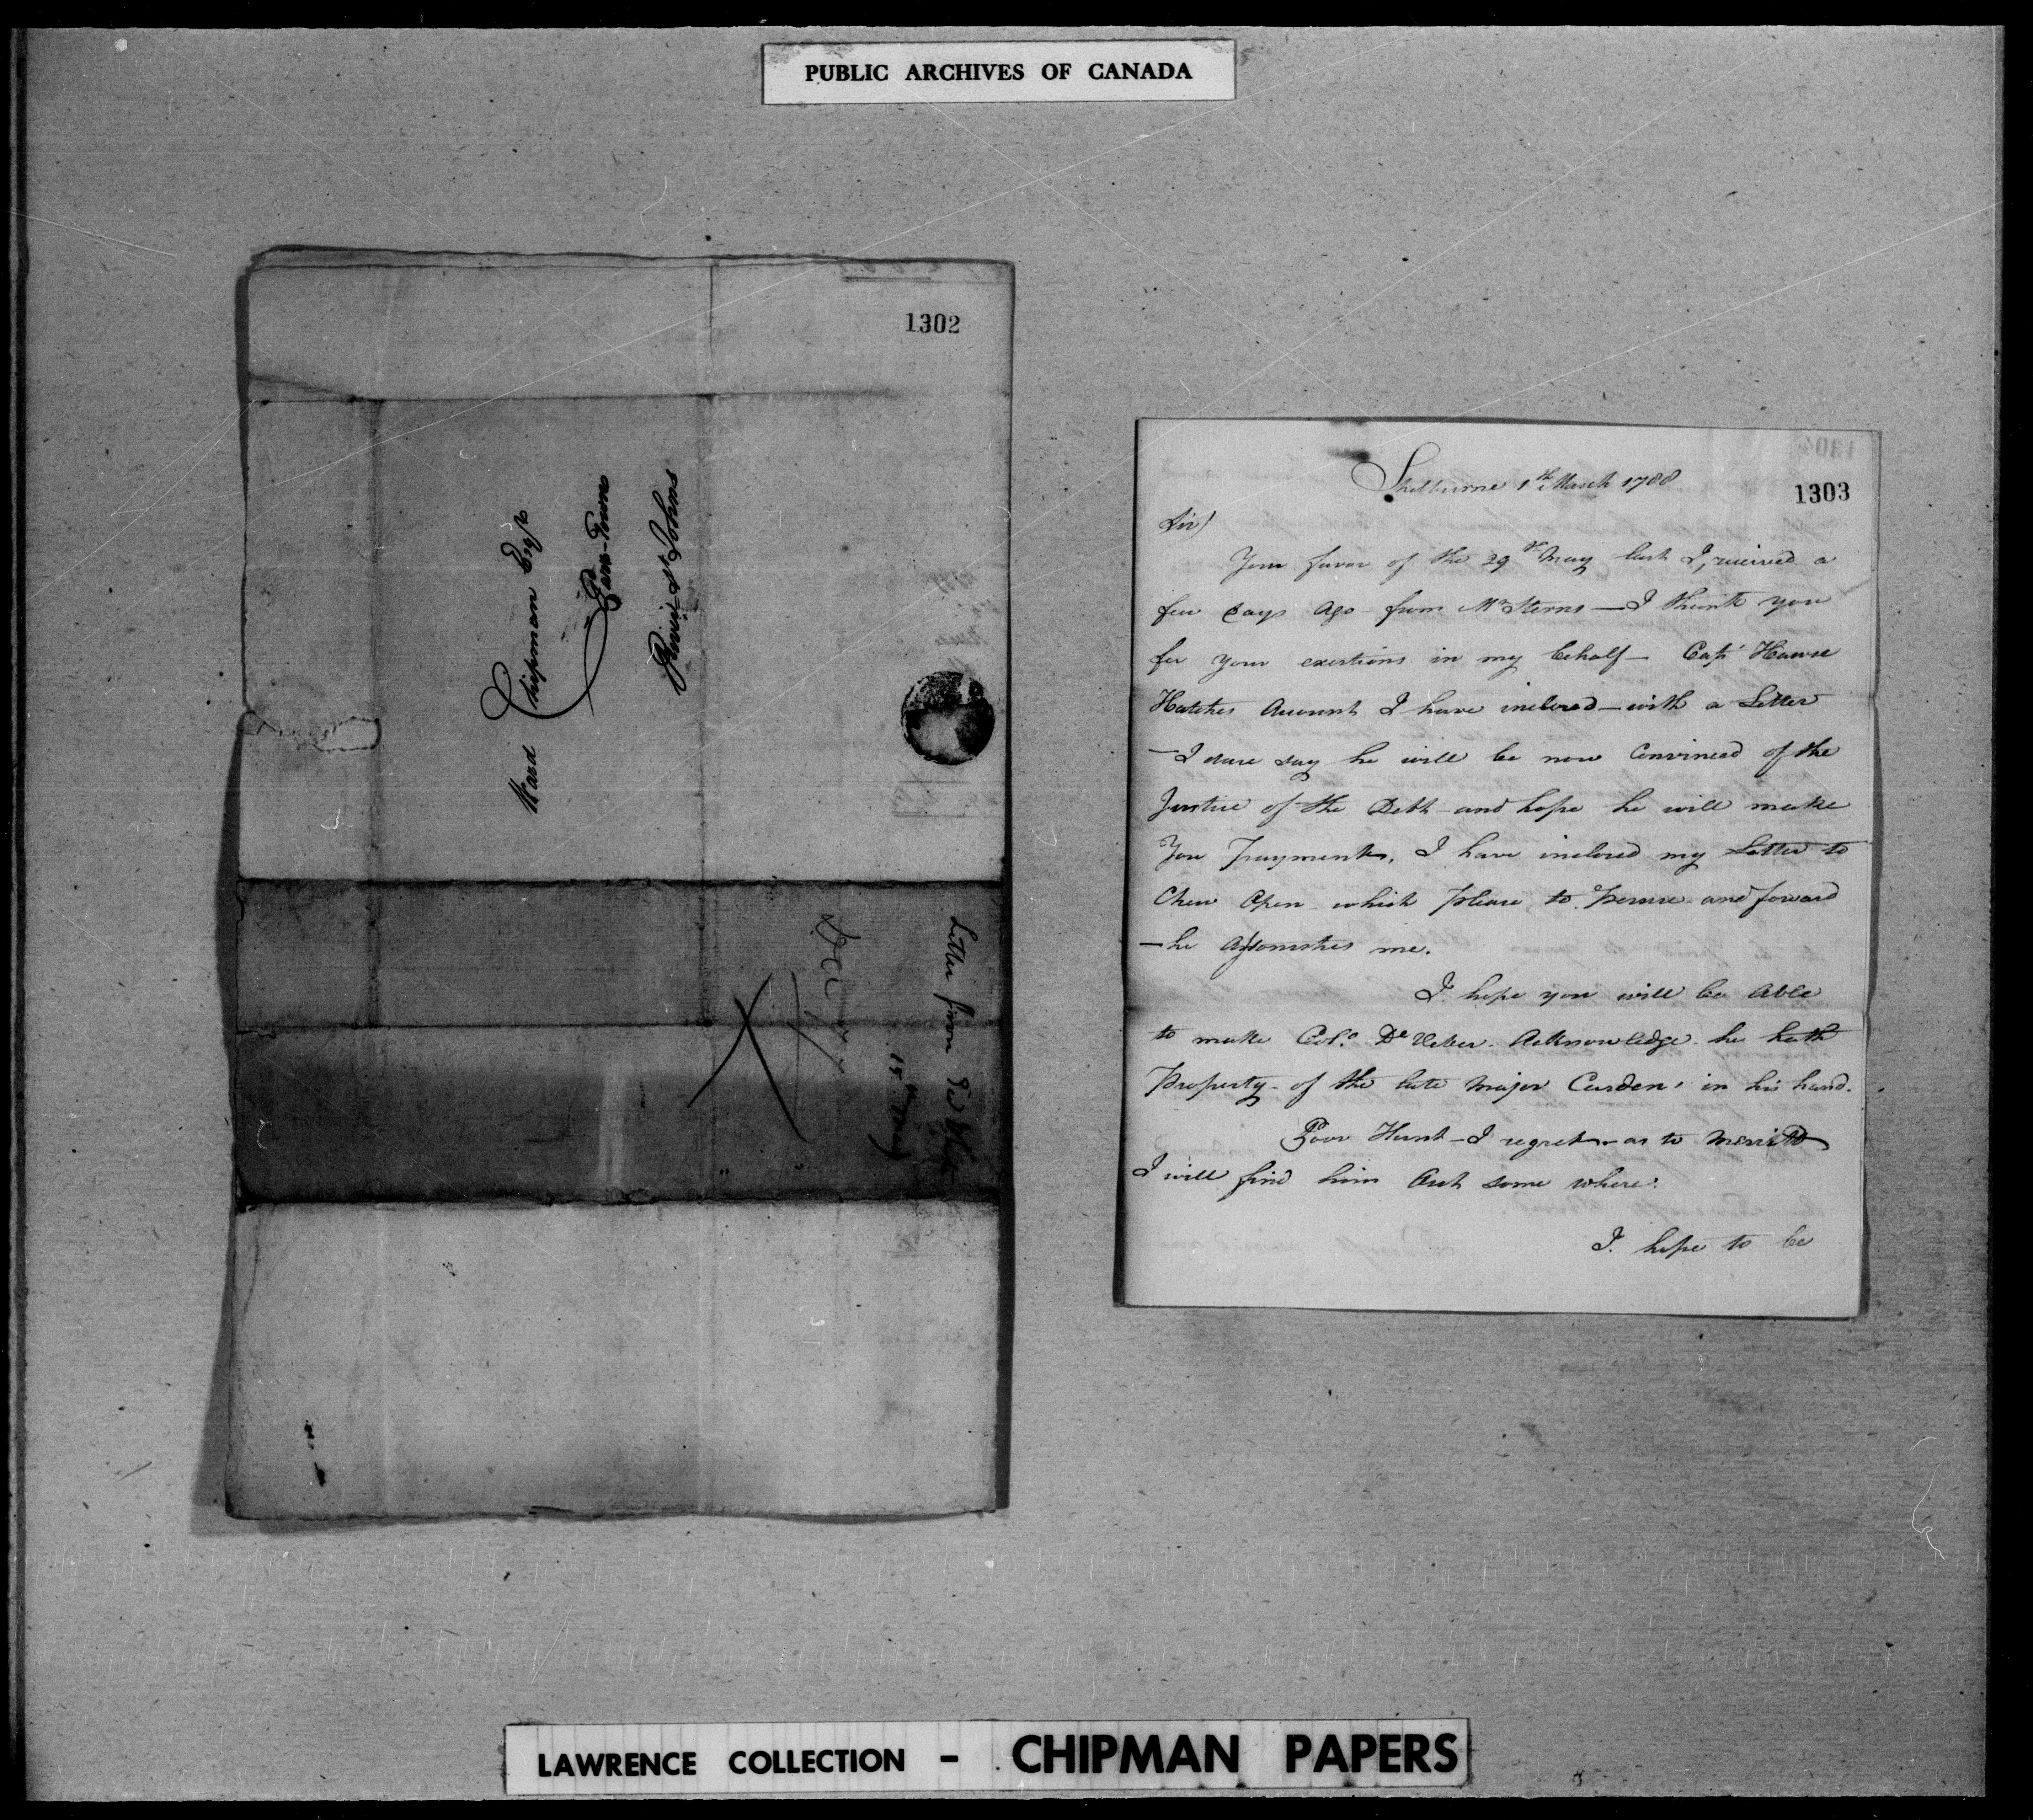 PUBLIC ARCHIVES OF CANADA
1302
Ward Chipman Esqr
Parr-Town
River St Johns
Letter from
15th May
1303
Shelburne 1st March 1788
Sir)
Your favor of the 29th May last I, received a
few Days Ago from Mr Sterns — I thank you
for your exertions in my behalf — Capt Hawse
Hatches Account I have inclosed — with a Letter
— I dare say he will be now Convinced of the
Justice of the Debt — and hope he will make
You Payment. I have inclosed my Letter to
Chew Open which Please to Peruse and forward
— he Astonishes me.
I hope you will be Able
to make Colo. De Veber Acknowledge he hath
Property of the late Major Carden, in his hand.
Poor Hunt — I regret — as to Merritt
I will find him Out some where.
I. hope to be
LAWRENCE COLLECTION - CHIPMAN PAPERS